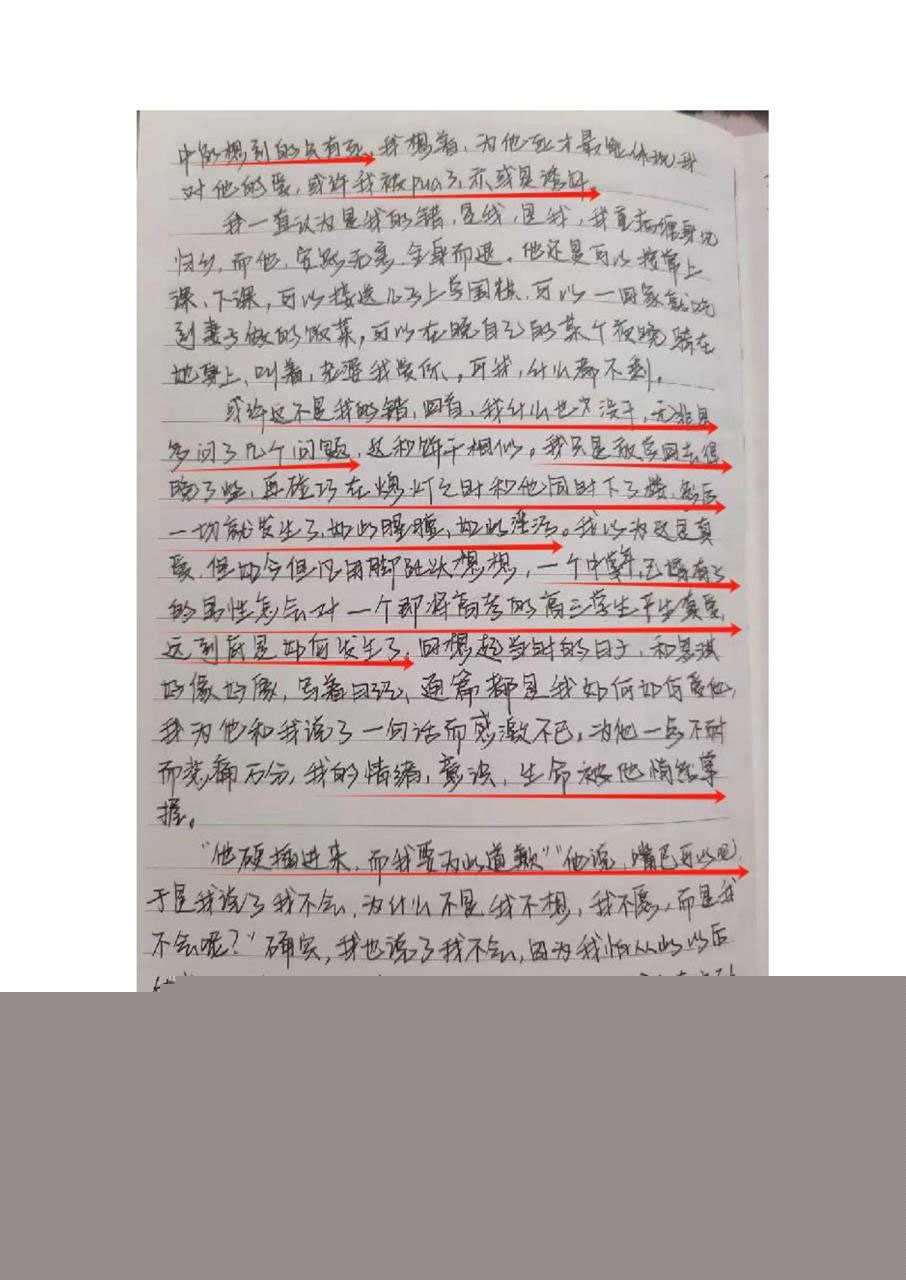 中能想到的只有死，我想着，为他死才最能体现我
对他的爱，或许我被pua了，亦或是诱奸。
我一直认为是我的错，是我，是我，我直
归，而他，安然无恙，全身而退。他还是可以按常上
课、下课，可以接送儿子上学围棋，可以一回家就吃
到妻子做的饭菜，可以在晚自习的某个夜晚骑在
她身上，叫着，老婆我爱你，可我，什么都不剩。
或许这不是我的错，回首，我什么也没干，无非是
多问了几个问题，这和饼干相似。我只是放学回去得
晚了些，再碰巧在熄灯之时和他同时下了楼，然后
一切就发生了，如此腥膻，如此淫污。我以为这是真
爱，但如今但凡用脚趾头想想，一个中年，已婚有子
的男性怎么对一个即将高考的高三学生产生真爱，
这到底是如何发生了，回想起当时的日子，和思琪
好像好像，写着日记，通篇都是我如何如何爱他，
我为他和我说了一句话而感激不已，为他一点不耐
而悲痛万分，我的情绪，意识，生命被他悄然掌
握。
“他硬插进来，而我要为此道歉”“他说，嘴巴可以吧，
于是我说了我不会，为什么不是我不想，我不愿，而是我
不会呢？”确实，我也说了我不会，因为我怕从此以后